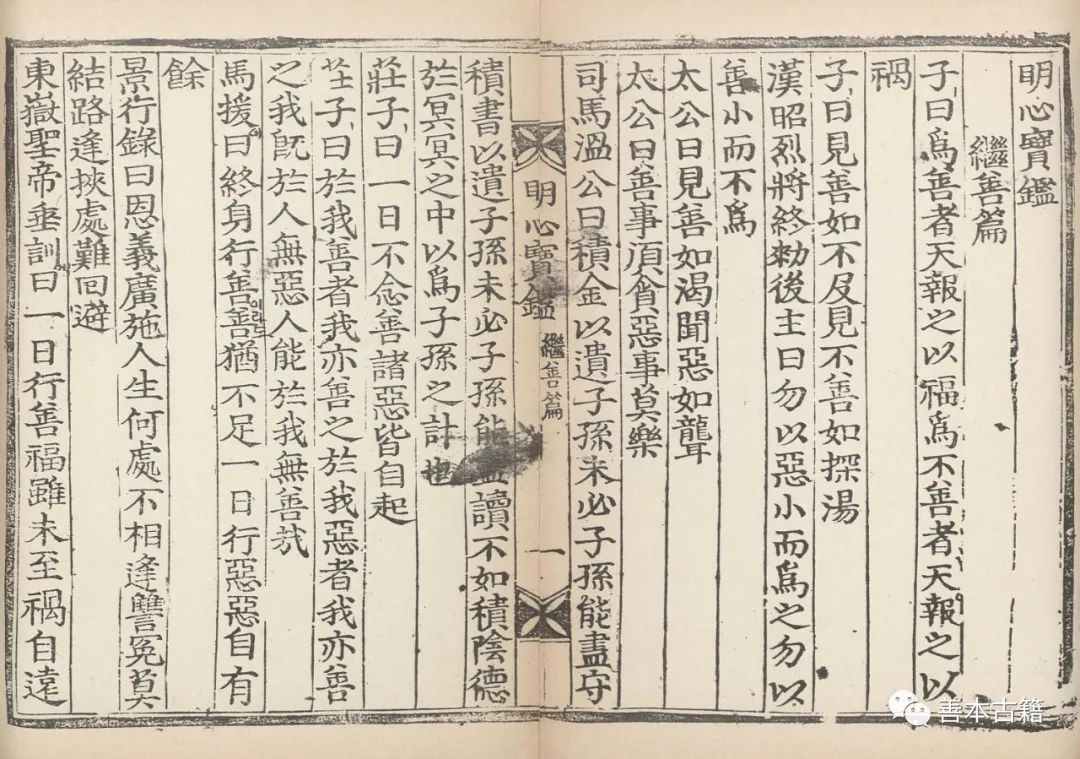 明心寶鑑
繼善篇
子曰爲善者天報之以福爲不善者天報之以
禍
子曰見善如不及見不善如探湯
漢昭烈將終勑後主曰勿以惡小而爲之勿以
善小而不爲
太公曰見善如渴聞惡如聾
太公曰善事須貪惡事莫樂
司馬溫公曰積金以遺子孫未必子孫能盡守
明心寶鑑 繼善篇 一
積書以遺子孫未必子孫能讀不如積陰德
於冥冥之中以爲子孫之計也
莊子曰一日不念善諸惡皆自起
莊子曰於我善者我亦善之於我惡者我亦善
之我旣於人無惡人能於我無善哉
馬援曰終身行善善猶不足一日行惡惡自有
餘
景行錄曰恩義廣施人生何處不相逢讐冤莫
結路逢挾處難回避
東嶽聖帝垂訓曰一日行善福雖未至禍自遠
善本古籍